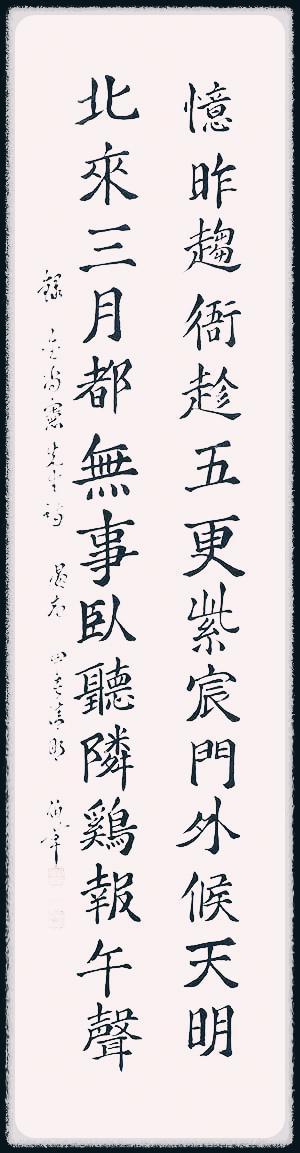 憶昨趨衙趁五更紫宸門外候天明
北來三月都無事臥聽隣鷄報午聲
錄 金尚憲先生詩